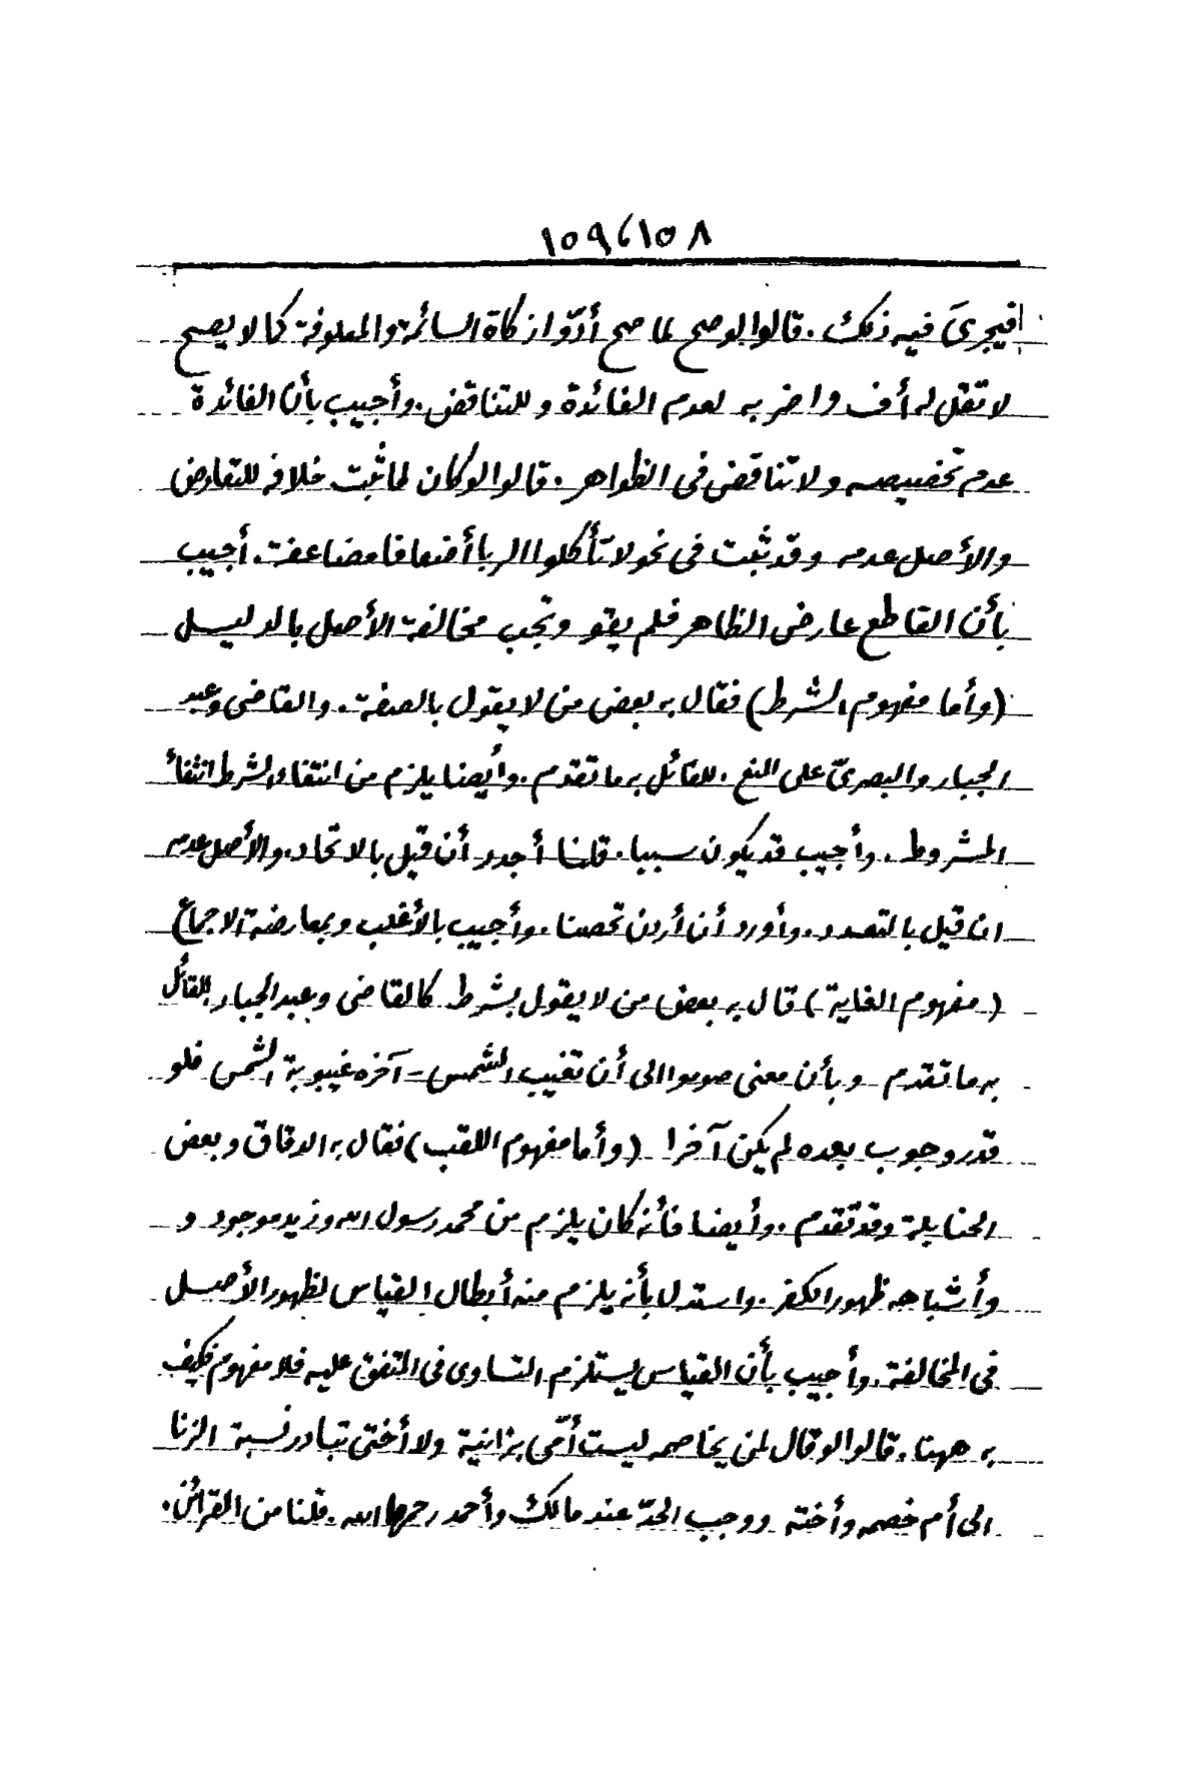 ١٥٩،١٥٨
فيجرى فيه ذلك . قالوا لو صح لما صح أدّوا زكاة السائمة والمعلوفة كما لا يصح
لا تقل له أف واضربه لعدم الفائدة وللتناقض . وأجيب بأن الفائدة
عدم تخصيصه ولا تناقض فى الظواهر . قالوا لو كان لما ثبت خلافه للتعارض
والأصل عدمه وقد ثبت فى نحو لا تأكلوا الربا أضعافا مضاعفة . أجيب
بأن القاطع عارض الظاهر فلم يقو وتجب مخالفة الأصل بالدليل
(وأما مفهوم الشرط) فقال به بعض من لا يقول بالصفة . والقاضى وعبد
الجبار والبصرىّ على المنع . للقائل به ما تقدم . وأيضا يلزم من انتفاء الشرط انتفأ
المشروط . وأجيب قد يكون سببا . قلنا أجدر أن قيل بالاتحاد . والأصل عدمه
ان قيل بالتعدد . وأورد أن أردن تحصنا . وأجيب بالأغلب وبمعارضة الاجماع
(مفهوم الغاية) قال به بعض من لا يقول بشرط كالقاضى وعبد الجبار للقائل
به ما تقدم - وبأن معنى صوموا الى أن تغيب الشمس - آخره غيبوبة الشمس فلو
قدر وجوب بعده لم يكن آخرا (وأما مفهوم اللقب) فقال به الدقاق وبعض
الحنابلة وقد تقدم . وأيضا فأنه كان يلزم من محمد رسول الله وزيد موجود و
وأشباهه ظهور الكفر . واستدل بأنه يلزم منه أبطال القياس لظهور الأصل
فى المخالفة . وأجيب بأن القياس يستلزم التساوى فى المتفق عليه فلا مفهوم فكيف
به ههنا . قالوا لو قال لمن يخاصمه ليست أمّى بزانية ولا أختى تبادر نسبة الزنا
الى أم خصمه وأخته ووجب الحدّ عند مالك وأحمد رحمهما الله . قلنا من القرائن .